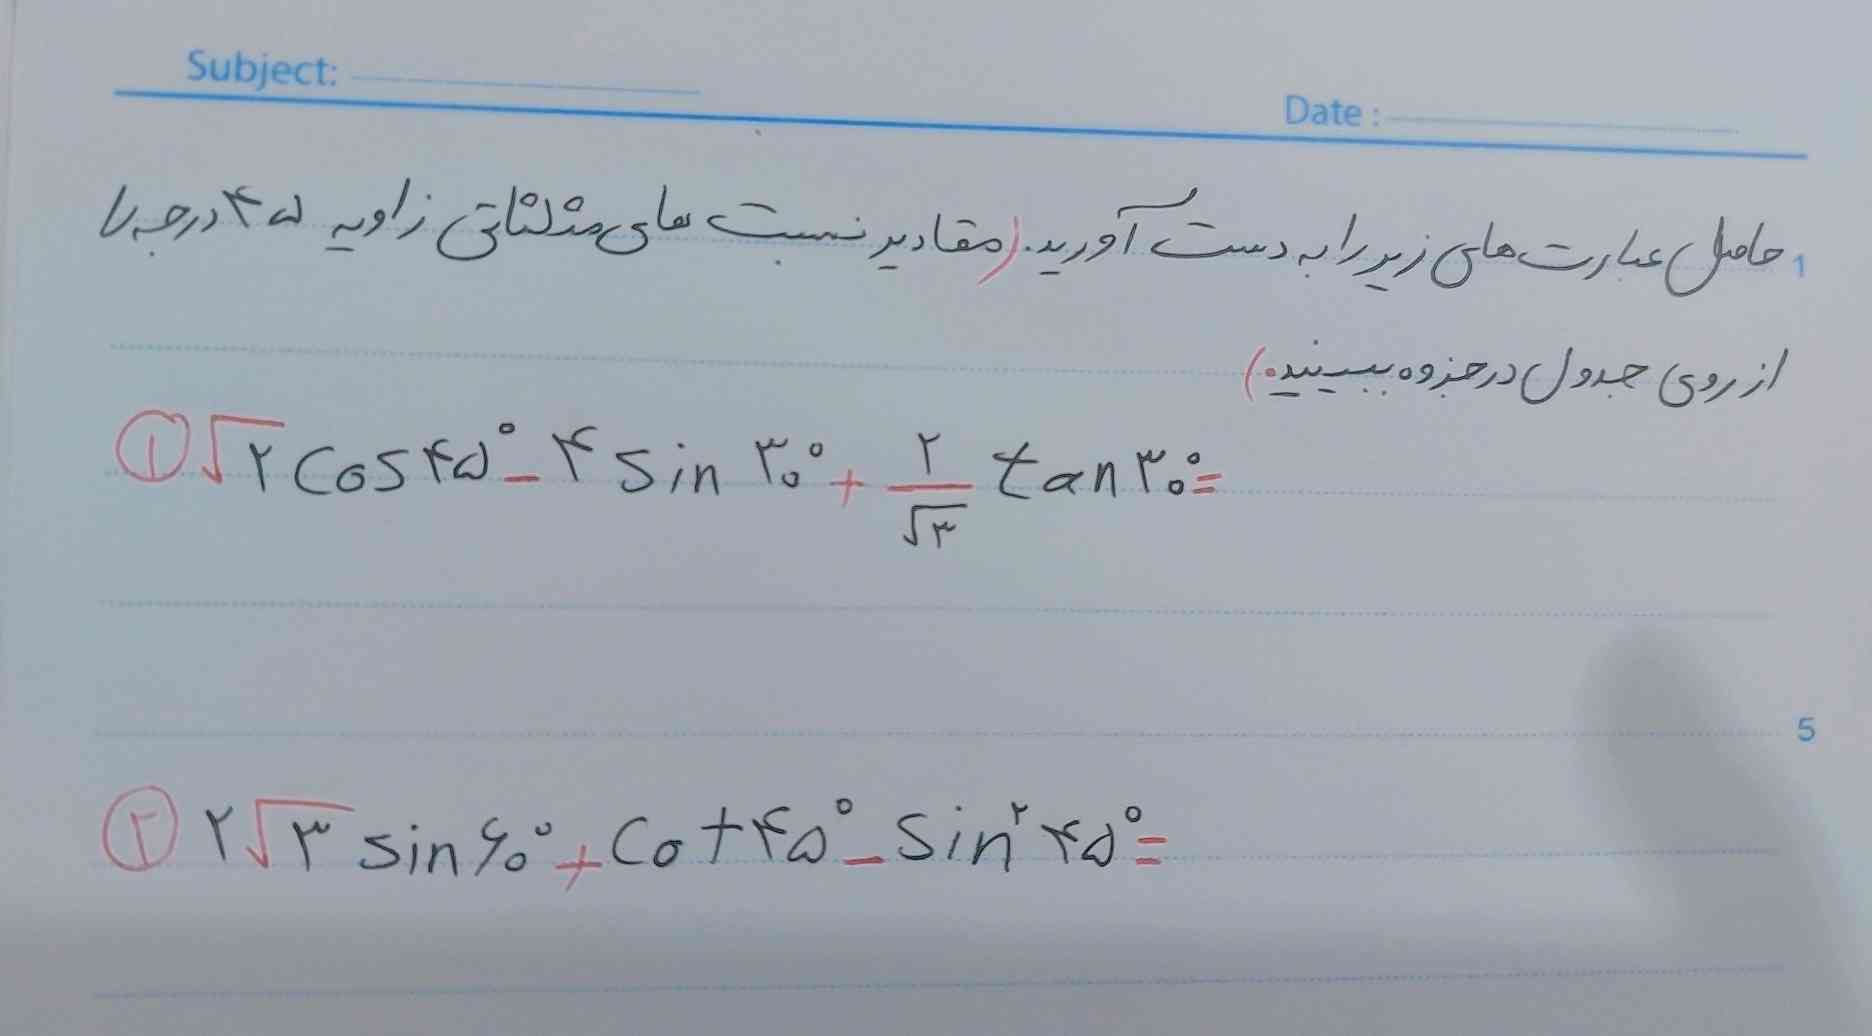 Subject:
Date :
1 حاصل عبارت های زیر را به دست آورید. (مقادیر نسبت های مثلثاتی زاویه ۴۵ درجه را
از روی جدول در جزوه ببینید.)
① √۲ cos ۴۵° - ۴ sin ۳۰° + ۲/√۳ tan ۳۰° =
5
② ۲√۳ sin ۶۰° + cot ۴۵° - sin² ۴۵° =